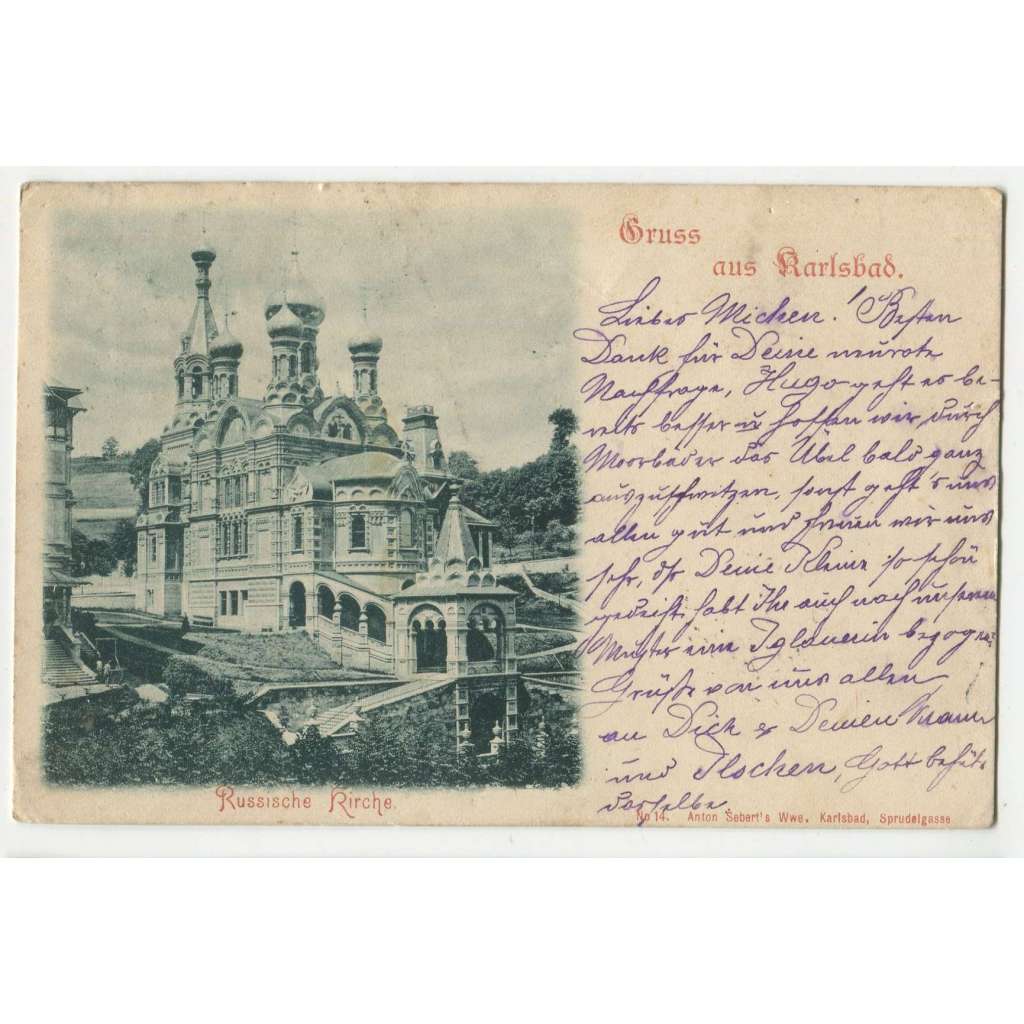 Gruss
aus Karlsbad.
Liebes Micken! Besten
Dank für Deine
Nachfrage, Hugo geht es be-
reits besser u hoffen wir, durch
Moorbäder das Übel bald ganz
auszuschwitzen, sonst geht's uns
allen gut und freuen wir uns
sehr, dß Deine Kleine so schön
gedeiht, habt Ihr auch nach unserem
Muster eine Iglauerin bezogen?
Grüße von uns allen
an Dich & Deinen Mann
und Ilschen, Gott behüt.
dasselbe
Russische Kirche.
No 14. Anton Sebert's Wwe. Karlsbad, Sprudelgasse